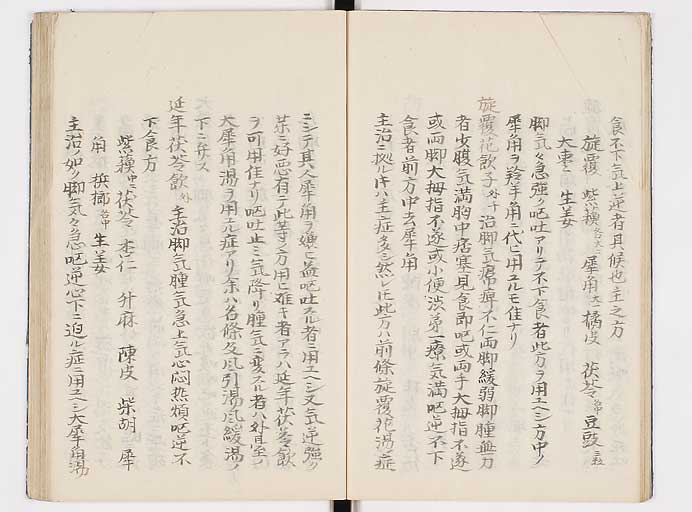 食不下気上逆者具候也主之方
旋覆 紫蘓 犀角 橘皮 茯苓 豆豉
大棗 生姜
脚気々急強ク呕吐アリテ不下食者此方ヲ用ユヘシ方中ノ
犀角ヲ羚羊角ニ代ヒ用ユルモ佳ナリ
旋覆花散子 治脚気痛痺不仁両脚緩弱脚腫無力
者少腹気満胸中痞塞見食即呕或両手大拇指不遂
或両脚大拇指不遂或小便渋第一療気満呕逆不下
食者前方中去犀角
主治ニ拠ルトキハ主症多シ然レ𪜈此方ハ前條旋覆花湯ノ症
ニシテ其人犀角ヲ嫌ヒ益呕吐スル者ニ用ユヘシ又気逆強ク
茶ニ好悪有テ此等ノ方用ヒ難キ者アラハ延年茯苓飲
ヲ可用佳ナリ呕吐止ミ気降リ腫気ニ変スル者ハ外臺ノ
大犀角湯ヲ用ユル症アリ余ハ名條及風引湯風緩湯ノ
下ニ弁ス
延年茯苓飲 外 主治脚気腫気急上気心悶热煩呕逆不
下食方
紫蘓 茯苓 杏仁 升麻 陳皮 柴胡 犀
角 槟榔 生姜
主治ノ如ク脚気々急呕逆心下ニ迫ル症ニ用ユヘシ大犀角湯